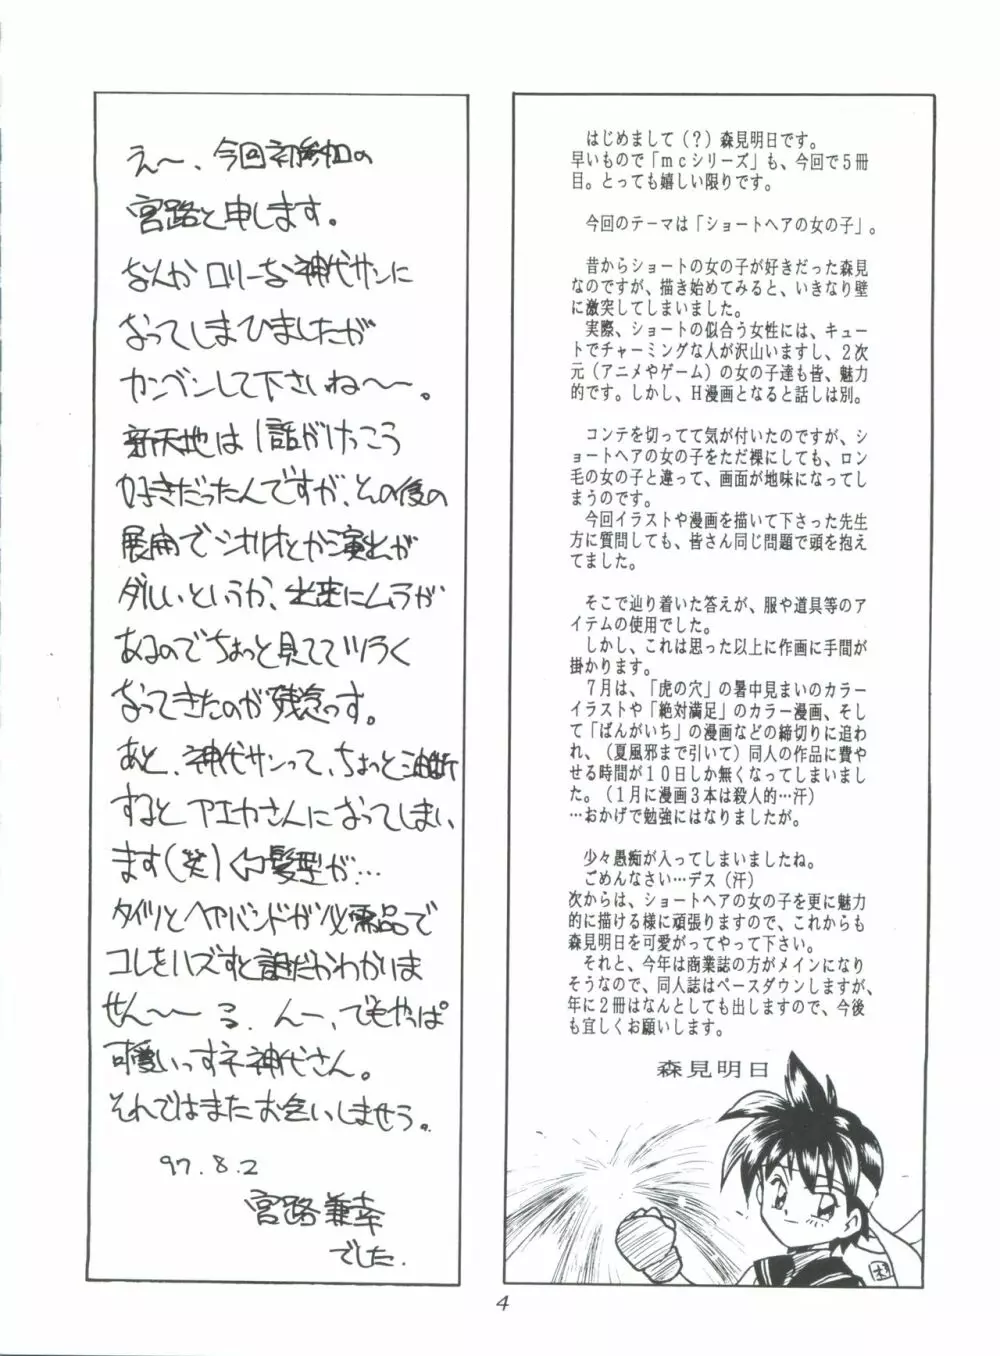 えー、今回初参加の
宮路と申します。
なんかロリーな神代サンに
なってしまひましたが
カンベンして下さいね〜〜。
新天地は1話がけっこう
好きだったんですが、その後の
展開でシナリオとか演出が
ダルいというか、出来にムラが
あるのでちょっと見ててツラく
なってきたのが残念っす。
あと、神代サンって、ちょっと油断
するとアエカさんになってしまい
ます(笑)髪型が…
タイツとヘアバンドが必需品で
コレをハズすと誰だかわかりま
せん〜〜る。んー、でもやっぱ
可愛いっすネ神代さん。
それではまたお会いしませう。
97.8.2
宮路兼幸
でした.
はじめまして(?)森見明日です。
早いもので「mcシリーズ」も、今回で5冊
目。とっても嬉しい限りです。
今回のテーマは「ショートヘアの女の子」。
昔からショートの女の子が好きだった森見
なのですが、描き始めてみると、いきなり壁
に激突してしまいました。
実際、ショートの似合う女性には、キュー
トでチャーミングな人が沢山いますし、2次
元(アニメやゲーム)の女の子達も皆、魅力
的です。しかし、H漫画となると話しは別。
コンテを切ってて気が付いたのですが、シ
ョートヘアの女の子をただ裸にしても、ロン
毛の女の子と違って、画面が地味になってし
まうのです。
今回イラストや漫画を描いて下さった先生
方に質問しても、皆さん同じ問題で頭を抱え
てました。
そこで辿り着いた答えが、服や道具等のア
イテムの使用でした。
しかし、これは思った以上に作画に手間が
掛かります。
7月は、「虎の穴」の暑中見まいのカラー
イラストや「絶対満足」のカラー漫画、そし
て「ばんがいち」の漫画などの締切りに追わ
れ、(夏風邪まで引いて)同人の作品に費や
せる時間が10日しか無くなってしまいまし
た。(1月に漫画3本は殺人的…汗)
…おかげで勉強にはなりましたが。
少々愚痴が入ってしまいましたね。
ごめんなさい…デス(汗)
次からは、ショートヘアの女の子を更に魅力
的に描ける様に頑張りますので、これからも
森見明日を可愛がってやって下さい。
それと、今年は商業誌の方がメインになり
そうなので、同人誌はペースダウンしますが、
年に2冊はなんとしても出しますので、今後
も宜しくお願いします。
森見明日
4